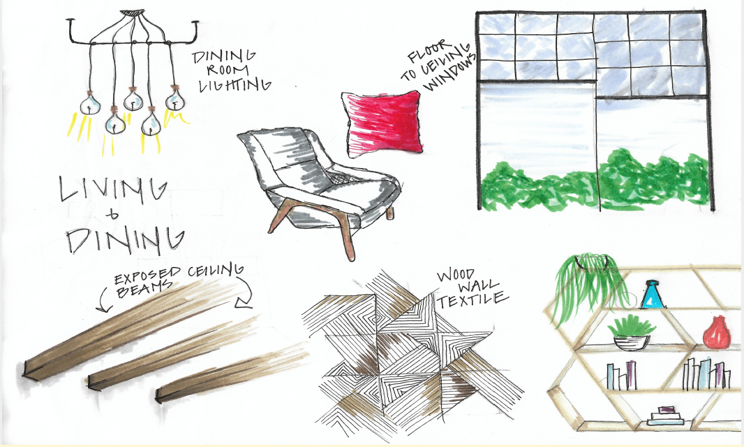 DINING
ROOM
LIGHTING
FLOOR
TO CEILING
WINDOWS
LIVING
+
DINING
EXPOSED CEILING
BEAMS
WOOD
WALL
TEXTILE